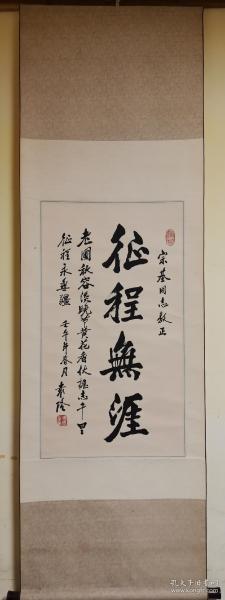 宗基同志教正
征程無涯
老圃秋容淡晚黄花香伏骥志千里
征程永無疆 壬午年春月 袁隆
孔夫子旧书网